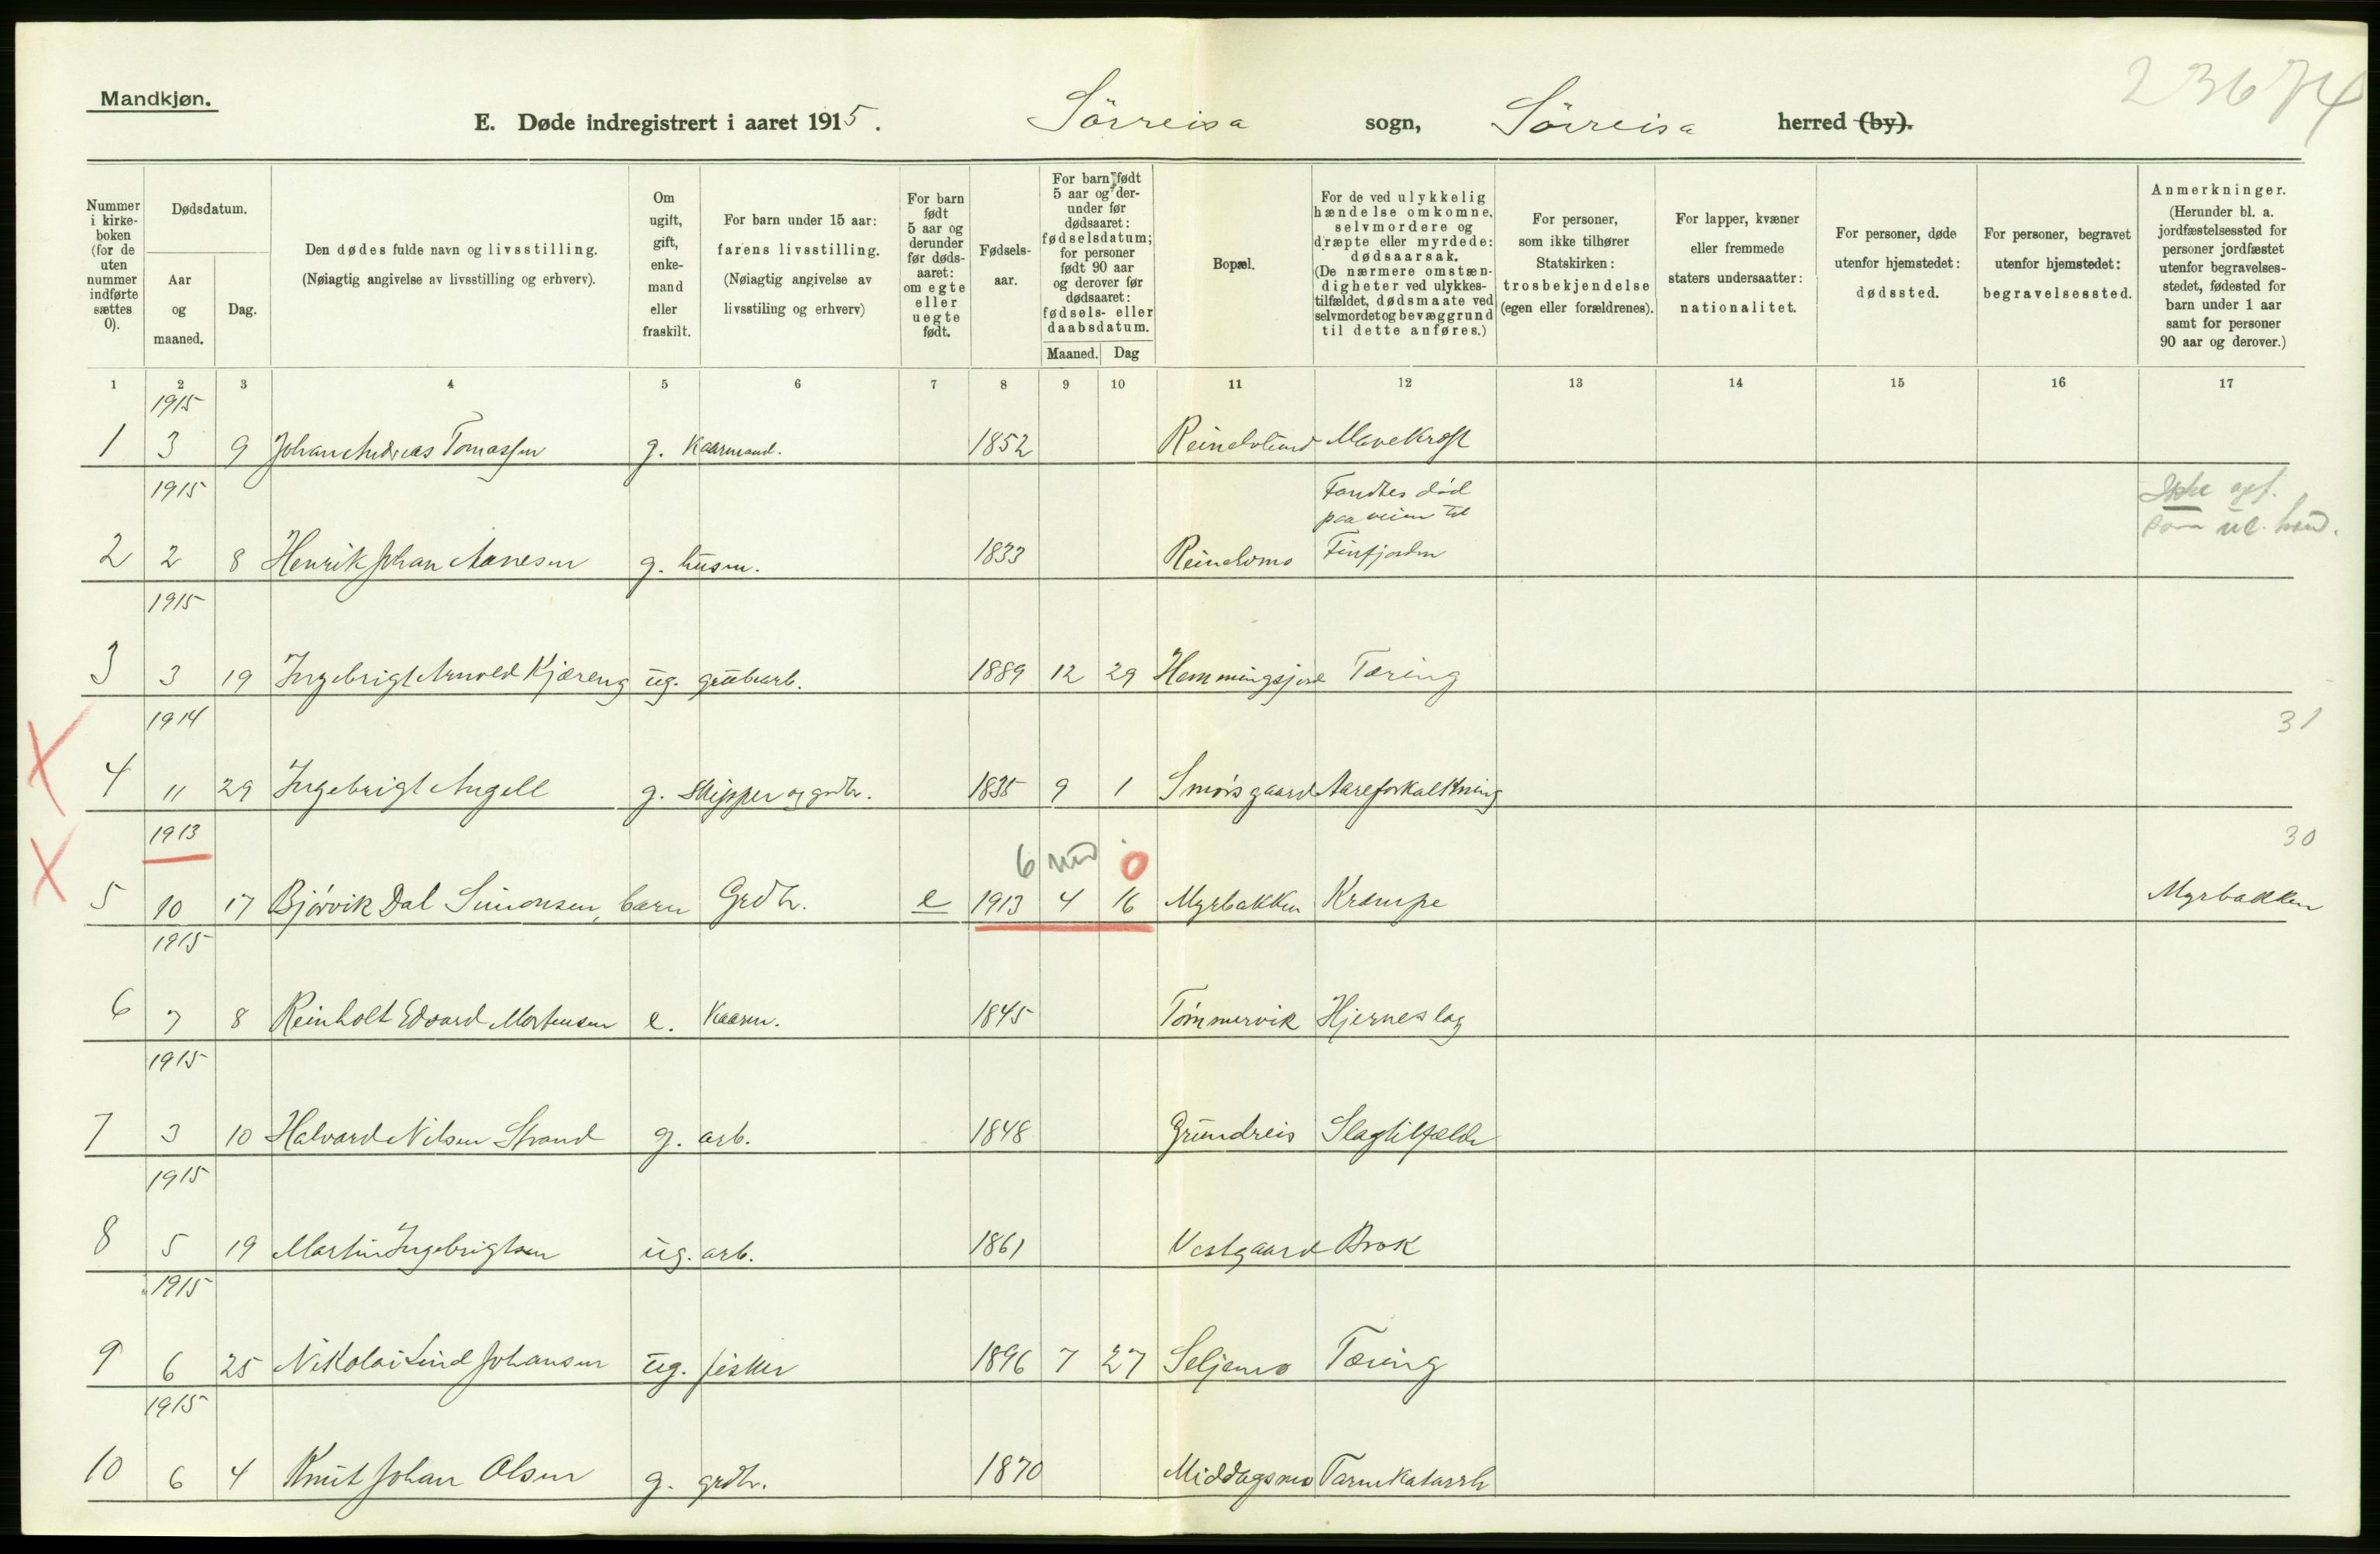 Mandkjøn.
23674
E. Døde indregistrert i aaret 1915. Sörreisa sogn, Sörreisa herred (by).
Nummer i kirke-boken (for de uten nummer indførte sættes 0).
Dødsdatum.
Aar og maaned.
Dag.
Den dødes fulde navn og livsstilling.
(Nøiagtig angivelse av livsstilling og erhverv).
Om ugift, gift, enke-mand eller fraskilt.
For barn under 15 aar: farens livsstilling.
(Nøiagtig angivelse av livsstiling og erhverv)
For barn født 5 aar og derunder før døds-aaret: om egte eller uegte født.
Fødsels-aar.
For barn født 5 aar og der-under før dødsaaret: fødselsdatum; for personer født 90 aar og derover før dødsaaret: fødsels- eller daabsdatum.
Maaned. Dag
Bopæl.
For de ved ulykkelig hændelse omkomne, selvmordere og dræpte eller myrdede: dødsaarsak.
(De nærmere omstæn-digheter ved ulykkes-tilfældet, dødsmaate ved selvmordet og bevæggrund til dette anføres.)
For personer, som ikke tilhører Statskirken: trosbekjendelse (egen eller forældrenes).
For lapper, kvæner eller fremmede staters undersaatter: nationalitet.
For personer, døde utenfor hjemstedet: dødssted.
For personer, begravet utenfor hjemstedet: begravelsessted.
Anmerkninger.
(Herunder bl. a. jordfæstelsessted for personer jordfæstet utenfor begravelses-stedet, fødested for barn under 1 aar samt for personer 90 aar og derover.)
1 2 3 4 5 6 7 8 9 10 11 12 13 14 15 16 17
1915
1 3 9 Johan Andreas Tomassen g. Kaarmand. 1852 Mavekræft
1915 Fandtes død
paa veien til Ikke opf.
som ul. hænd.
2 2 8 Henrik Johan Aanesen g. husm. 1833 Reinelvmo Finfjorden
1915
3 3 19 Ingebrigt Arnold Kjæreng ug. grubearb. 1889 12 29 Hemmingsjord Tæring
1914 31
4 11 29 Ingebrigt Angell g. Skipper og grdbr. 1835 9 1 Smörsgaard Aareforkalkning
1913 30
6 md 0
5 10 17 Bjórvik Dal Simonsen, barn Grdb. e 1913 4 16 Myrbakken Krampe Myrbakken
1915
6 7 8 Reinholt Edvard Mortensen e. Kaarm. 1845 Tömmervik Hjerneslag
1915
7 3 10 Halvard Nilsen Strand g. arb. 1848 Grundreis Slagtilfælde
1915
8 5 19 Martin Ingebrigtsen ug. arb. 1861 Vestgaard Brok
1915
9 6 25 Nikolai Lind Johansen ug. fisker 1896 7 27 Seljemo Tæring
1915
10 6 4 Knut Johan Olsen g. grdb. 1870 Middagsmo Tarmkatarrh